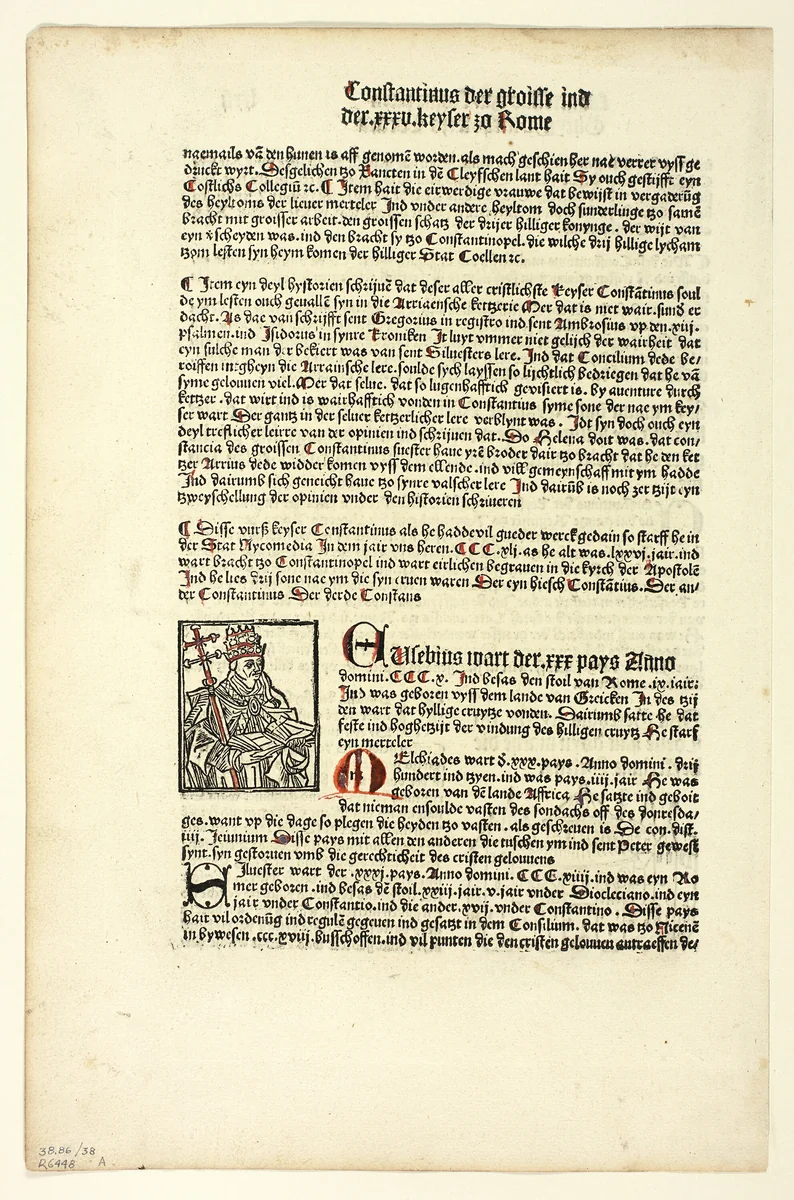 Constantinus der groisse ind
der.xxxv.keyser zo Rome
naemails vā den hunen is aff genomē worden.als mach geschien her nae verrer vyss ge
druckt wyrt. Desgelichen tzo Xancten in dē Cleyffschen lant hait Sy ouch gestifft eyn
Costlichs Collegiū ⁊c. ¶ Item hait die eirwerdige vrauwe dat bewijst in vergaderūg
des heyltoms der lieuer merteler Ind vnder andere heyltom doch sunderlinge tzo samē
bracht mit groisser arbeit.den groissen schatz der drijer hilliger konynge. der wijt van
eyn scheyden was.ind den bracht sy tzo Constantinopel.die wilche drij hillige lycham
tzom lesten syn heym komen der hilliger Stat Coellen ⁊c.
¶ Item eyn deyl hystorien schrijuē dat deser aller cristlichste Keyser Constātinus soul
de ym lesten ouch geuallē syn in die Arriaensche ketzerie Mer dat is niet wair.sund er
dacht. As dae van schrijfft sent Gregorius in registro ind sent Ambrosius vp den.xiij.
psalmen.ind Isidorus in synre Kroniken It luyt vmmer niet gelijch der wairheit dat
eyn sulche man der bekiert was van sent Siluesters lere. Ind dat Concilium dede be/
roiffen intgheyn die Arrainsche lere.soulde sych layssen so lijchtlich bedriegen dat he vā
syme gelouuen viel. Mer dat selue. dat so lugenhafftich gevisiert is. by auenture durch
ketzer.dat wirt ind is wairhafftich vonden in Constantius syme sone der nae ym key/
ser wart Der gantz in der seluer ketzerlicher lere verblynt was. Idt syn doch ouch eyn
deyl treflicher leirre van der opinien ind schrijuen dat. Do Helena doit was.dat con/
stancia des groissen Constantinus suester haue yrē broder dair tzo bracht dat he den ket
tzer Arrius dede widder komen vyss dem ellende.ind vill gemeynschaff mit ym hadde
Ind dairumb sich geneicht haue tzo synre valscher lere Ind dairūb is noch zer tzijt eyn
tzweyschellung der opinien vnder den historien schriueren
¶ Disse vurß keyser Constantinus als he hadde vil gueder werck gedain so starff he in
der Stat Nycomedia In dem jair vns heren. CCC.xlj.as he alt was.lxxvj.jair.ind
wart bracht tzo Constantinopel ind wart eirlichen begrauen in die kyrch der Apostolē
Ind he lies drij sone nae ym die syn eruen waren Der eyn hiesch Constātius. Der an/
der Constantinus Der derde Constans
EUsebius wart der.xxx pays Anno
domini. CCC.x. Ind besas den stoil van Rome.ix.iair:
Ind was geboren vyss dem lande van Greicken In des tzij
den wart dat hyllige cruytze vonden. Dairumb satte he dat
feste ind hoghetzijt der vindung des hilligen cruytz He starf
eyn merteler
MElchiades wart d.xxx.pays. Anno domini. drij
hundert ind tzyen.ind was pays.iiij.jair He was
geboren van dē lande Affrica He satzte ind geboit
dat nieman ensoulde vasten des sondachs off des donresda/
ges.want vp die dage so plegen die heyden tzo vasten.als geschreuen is De con.dist.
iij. Ieiunium Disse pays mit allen den anderen die tuschen ym ind sent Peter gewest
synt.syn gestoruen vmb die gerechticheit des cristen gelouuens
SIluester wart der.xxxj.pays. Anno domini. CCC.xiiij.ind was eyn Ro
mer geboren.ind besas dē stoil.xxiij.jair.v.jair vnder Diocleciano.ind eyn
jair vnder Constantio.ind die ander.xvij.vnder Constantino. Disse pays
hait vil ordenūg ind regulē gegeuen ind gesatzt in dem Consilium. dat was tzo Nicenē
in bywesen.ccc.xviij.busschoffen.ind vil punten die den cristen gelouuen antraeffen de/
38.86/38
R6448 A